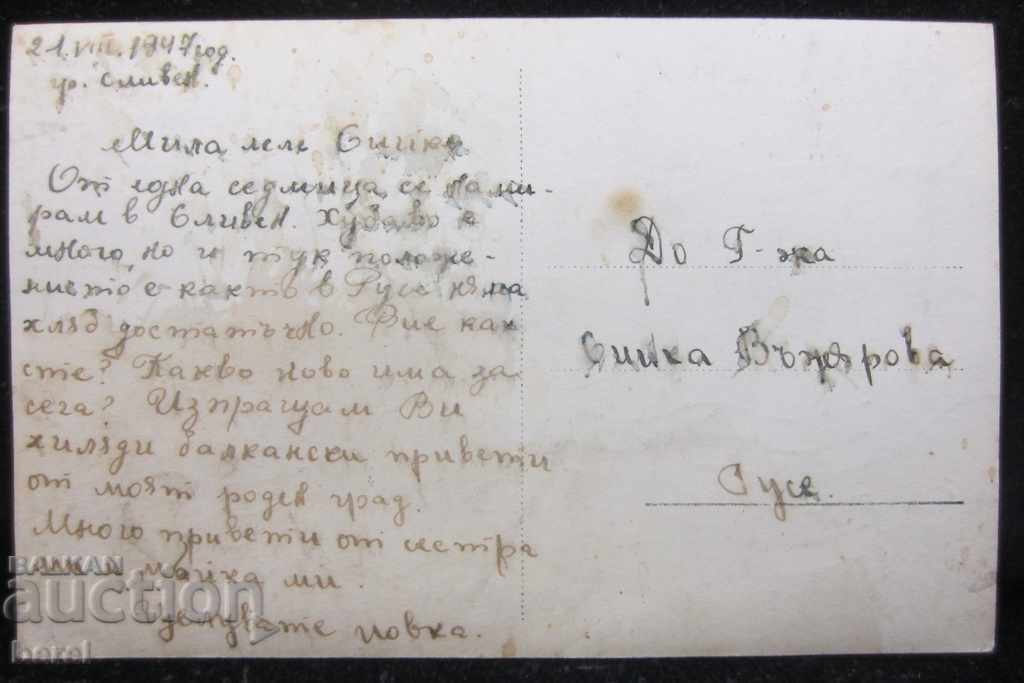 21.VIII.1947 год.
гр. Сливен.
Мила леле Сийке
От една седмица се нами-
рам в Сливен. Хубаво е
много, но и тук положе-
нието е както в Русе няма
хляб достатъчно. Вие как
сте? Какво ново има за
сега? Изпращам Ви
хиляди балкански привети
от моят роден град.
Много привети от сестра
ми и майка ми.
Целувате Йовка.
До Г-жа
Сийка Вънярова
Русе.
BALKAN
auction
berel